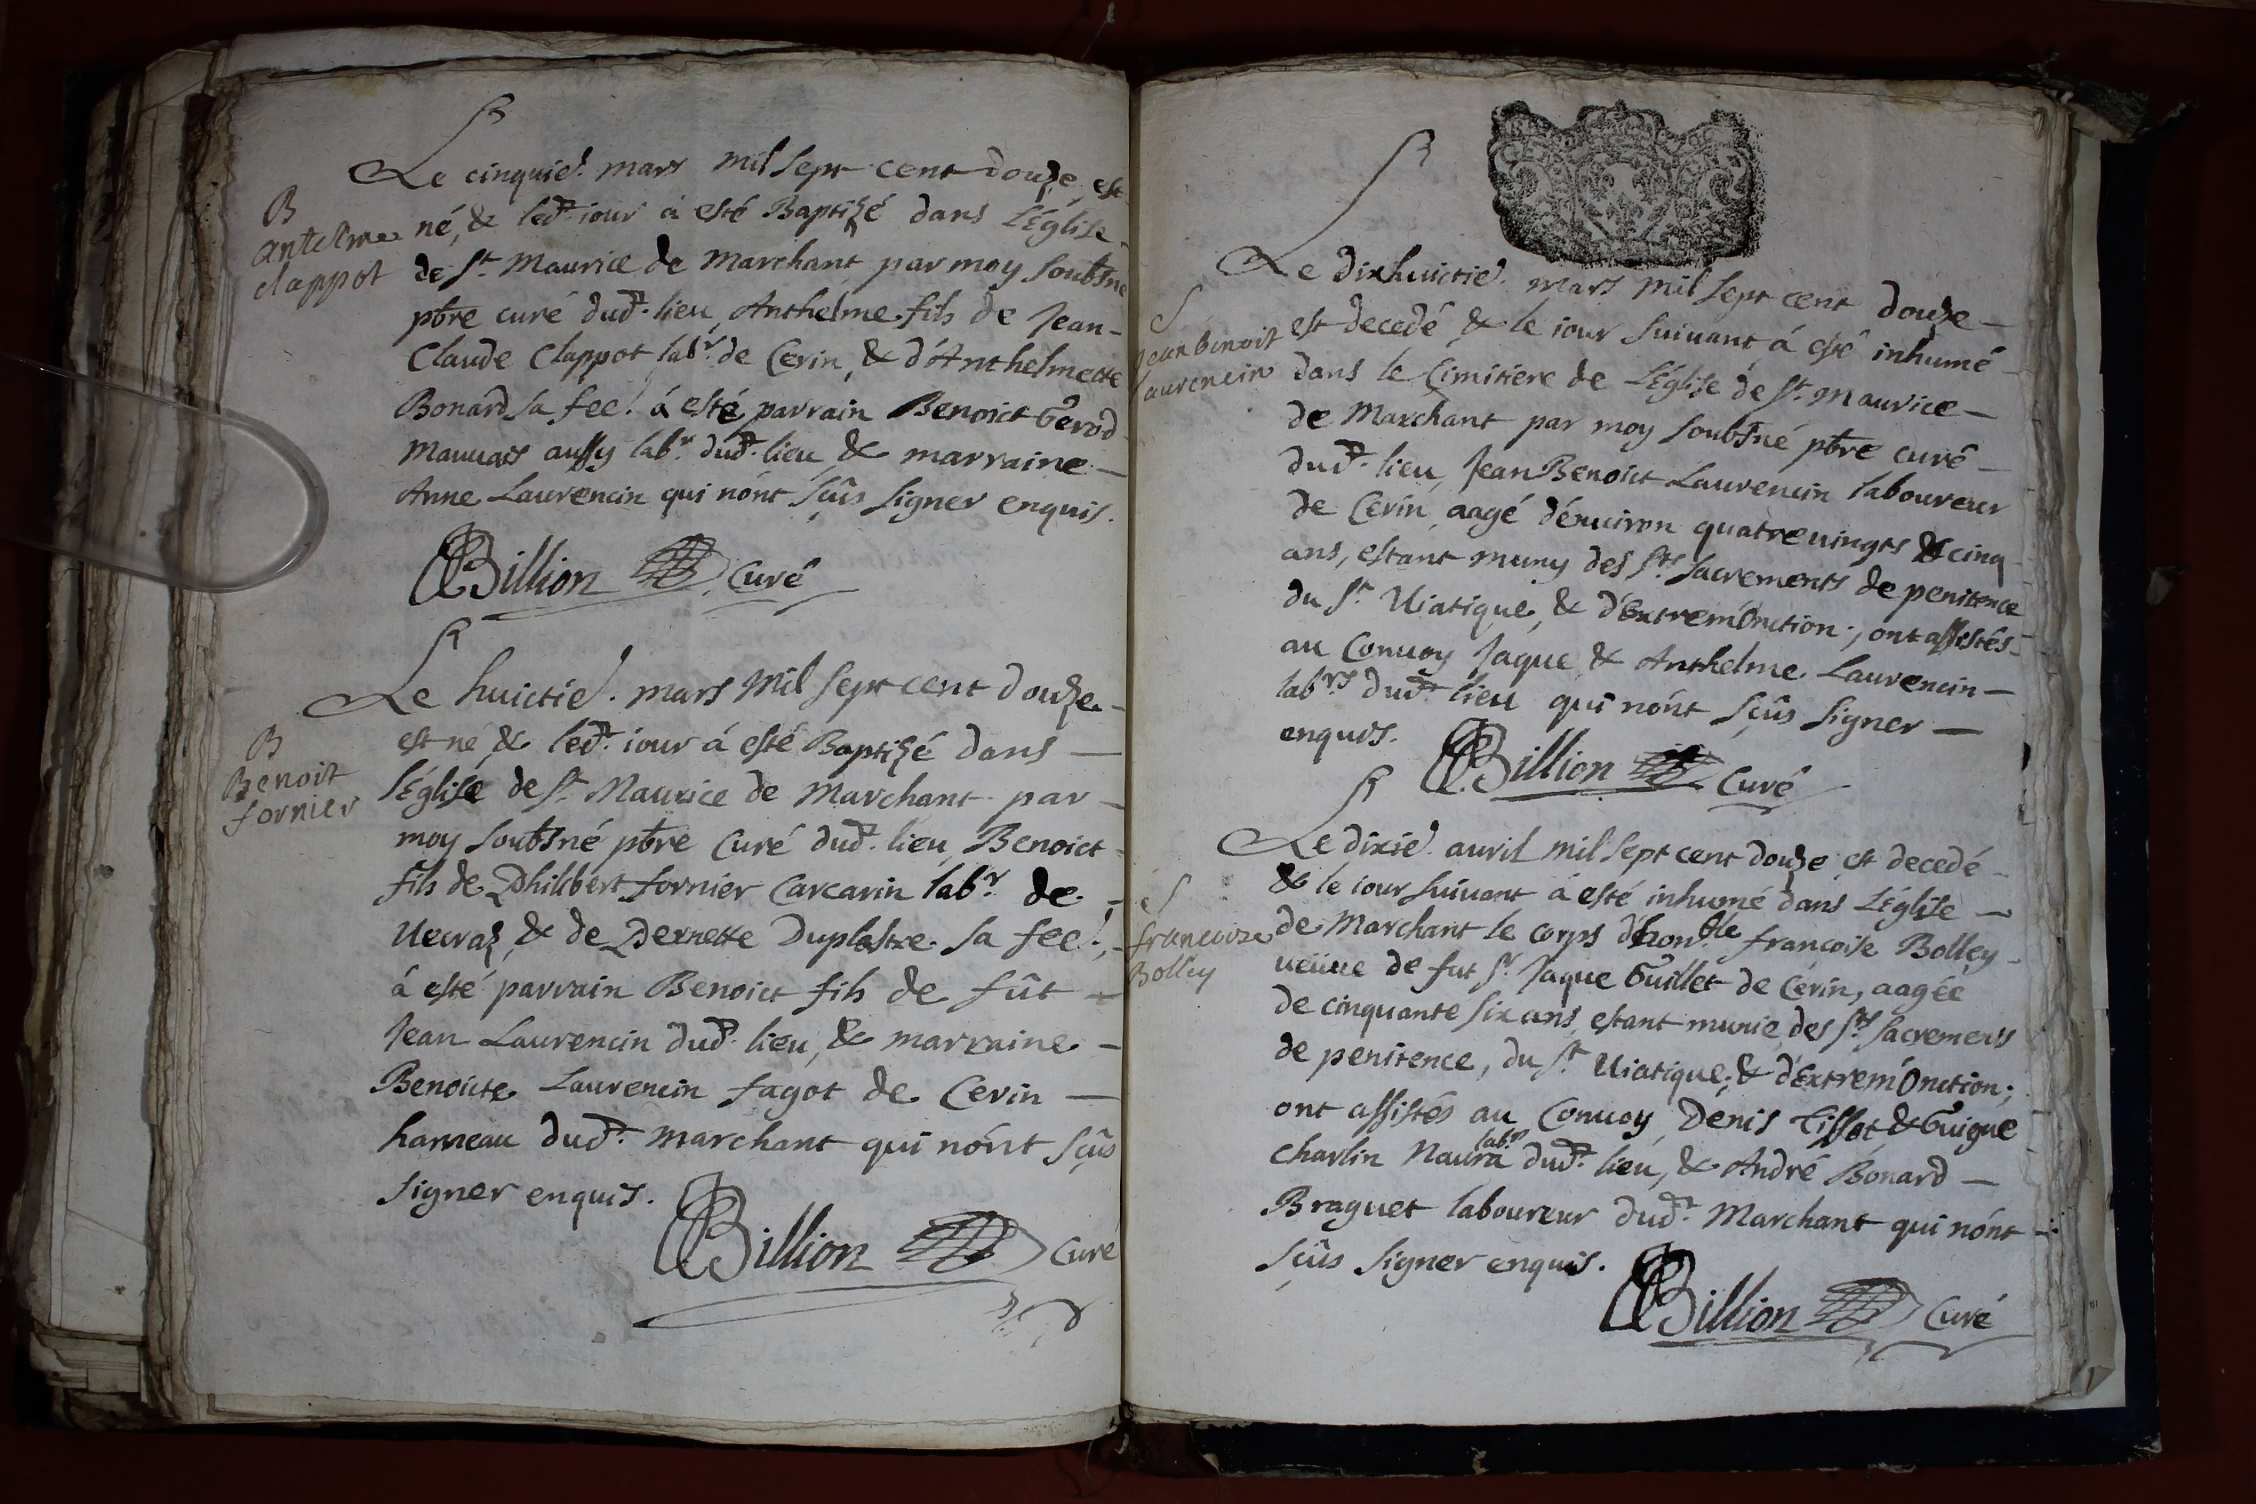 B
antelme
clappot
Le cinquie. mars mil sept cent douze, est
né, & led.t iour à esté Baptizé dans L'Église
de St. Maurice de Marchant par moy soubsné
pbre curé dud.t lieu, Anthelme fils de Jean-
Claude Clappot lab.r de Cerin, & d'Anthelmette
Bonard sa fee. á esté parrain Benoict Gerod
Mauuais aussy lab.r dud.t lieu & marraine —
Anne Laurencin qui nónt sçûs signer enquis.
Billion Curé
B
Benoit
fornier
Le huictie. mars mil sept cent douze
est né & led.t iour á esté Baptizé dans —
l'Église de St. Maurice de Marchant par —
moy soubsné pbre Curé dud.t lieu, Benoict
fils de Philibert fornier Carcarin lab.r de
Uecraz, & de Pernette Duplastre sa fee.
á esté parrain Benoict fils de fût
Jean Laurencin dud.t lieu, & marraine —
Benoicte Laurencin fagot de Cerin —
hameau dud.t Marchant qui nónt sçûs
signer enquis.
Billion Curé
S
Jean benoit
laurencin
Le dixhuictie. mars mil sept cent douze —
est decedé & le iour suiuant á esté inhumé
dans le Cimitiere de L'Église de St. Maurice —
de Marchant par moy soubsné pbre curé —
dud.t lieu, Jean Benoict Laurencin laboureur
de Cerin aagé d'énuiron quatreuingts & cinq
ans, estant muny des Sts. Sacrements de penitence
du St. Uiatique, & d'Extremónction; ont assistés
au Conuoy Jaque & Anthelme Laurencin —
lab.rs dud.t lieu qui nónt sçûs signer —
enquis.
Billion Curé
S
francoize
Bolley
Le dixie. auril mil sept cent douze est decedé
& le iour suiuant á esté inhumé dans L'Église —
de Marchant le corps d'hon.ble francoise Bolley
ueüue de fut Sr. Jaque Guillet de Cérin, aagée
de cinquante six ans, estant munie des Sts. Sacrements
de penitence, du St. Uiatique, & d'Extremónction;
ont assistés au Conuoy Denis Tissot & Guigue
Charlin Naura lab.rs dud.t lieu, & André Bonard —
Braguet laboureur dud.t Marchant qui nónt
sçûs signer enquis.
Billion Curé